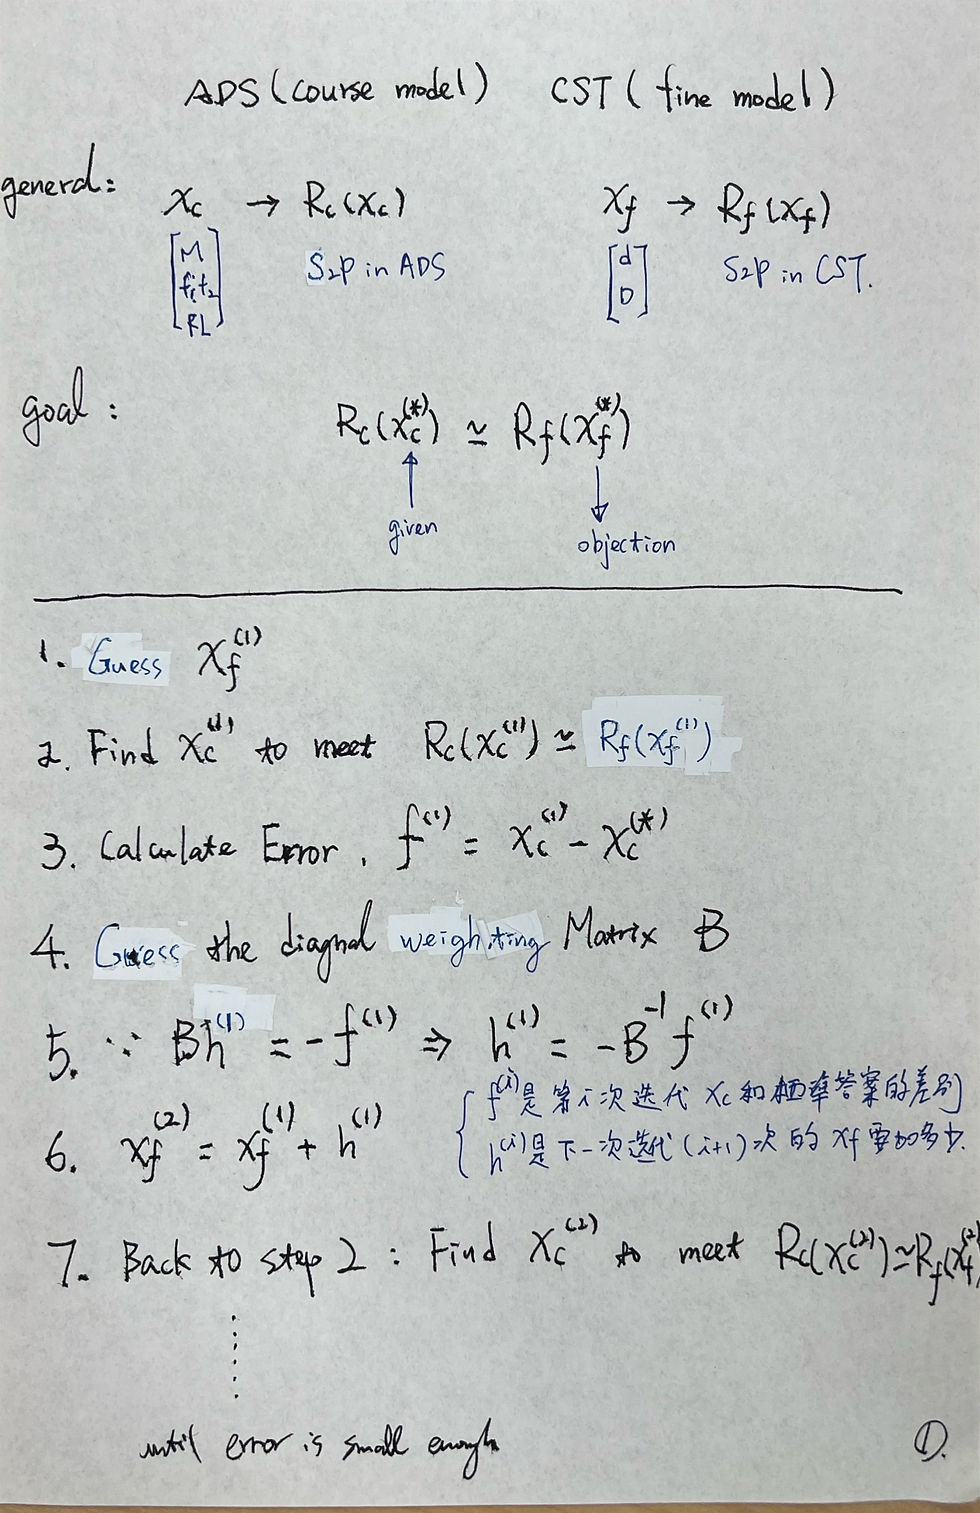 ADS (course model) CST ( fine model )
general: Xc → Rc(Xc) Xf → Rf(Xf)
[M f1,f2 RL] S2P in ADS [d D] S2P in CST.
goal : Rc(Xc^(*)) ≃ Rf(Xf^(*))
given
objection
1. Guess Xf^(1)
2. Find Xc^(1) to meet Rc(Xc^(1)) ≃ Rf(Xf^(1))
3. Calculate Error, f^(1) = Xc^(1) - Xc^(*)
4. Guess the diagnal weighting Matrix B
5. ∵ Bh^(1) = -f^(1) ⇒ h^(1) = -B^-1 f^(1)
f^(i)是第i次迭代 Xc和標準答案的差別
6. Xf^(2) = Xf^(1) + h^(1)
h^(i)是下一次迭代(i+1)次的 Xf要加多少.
7. Back to step 2 : Find Xc^(2) to meet Rc(Xc^(2)) ≃ Rf(Xf^(2)
until error is small enough
①.